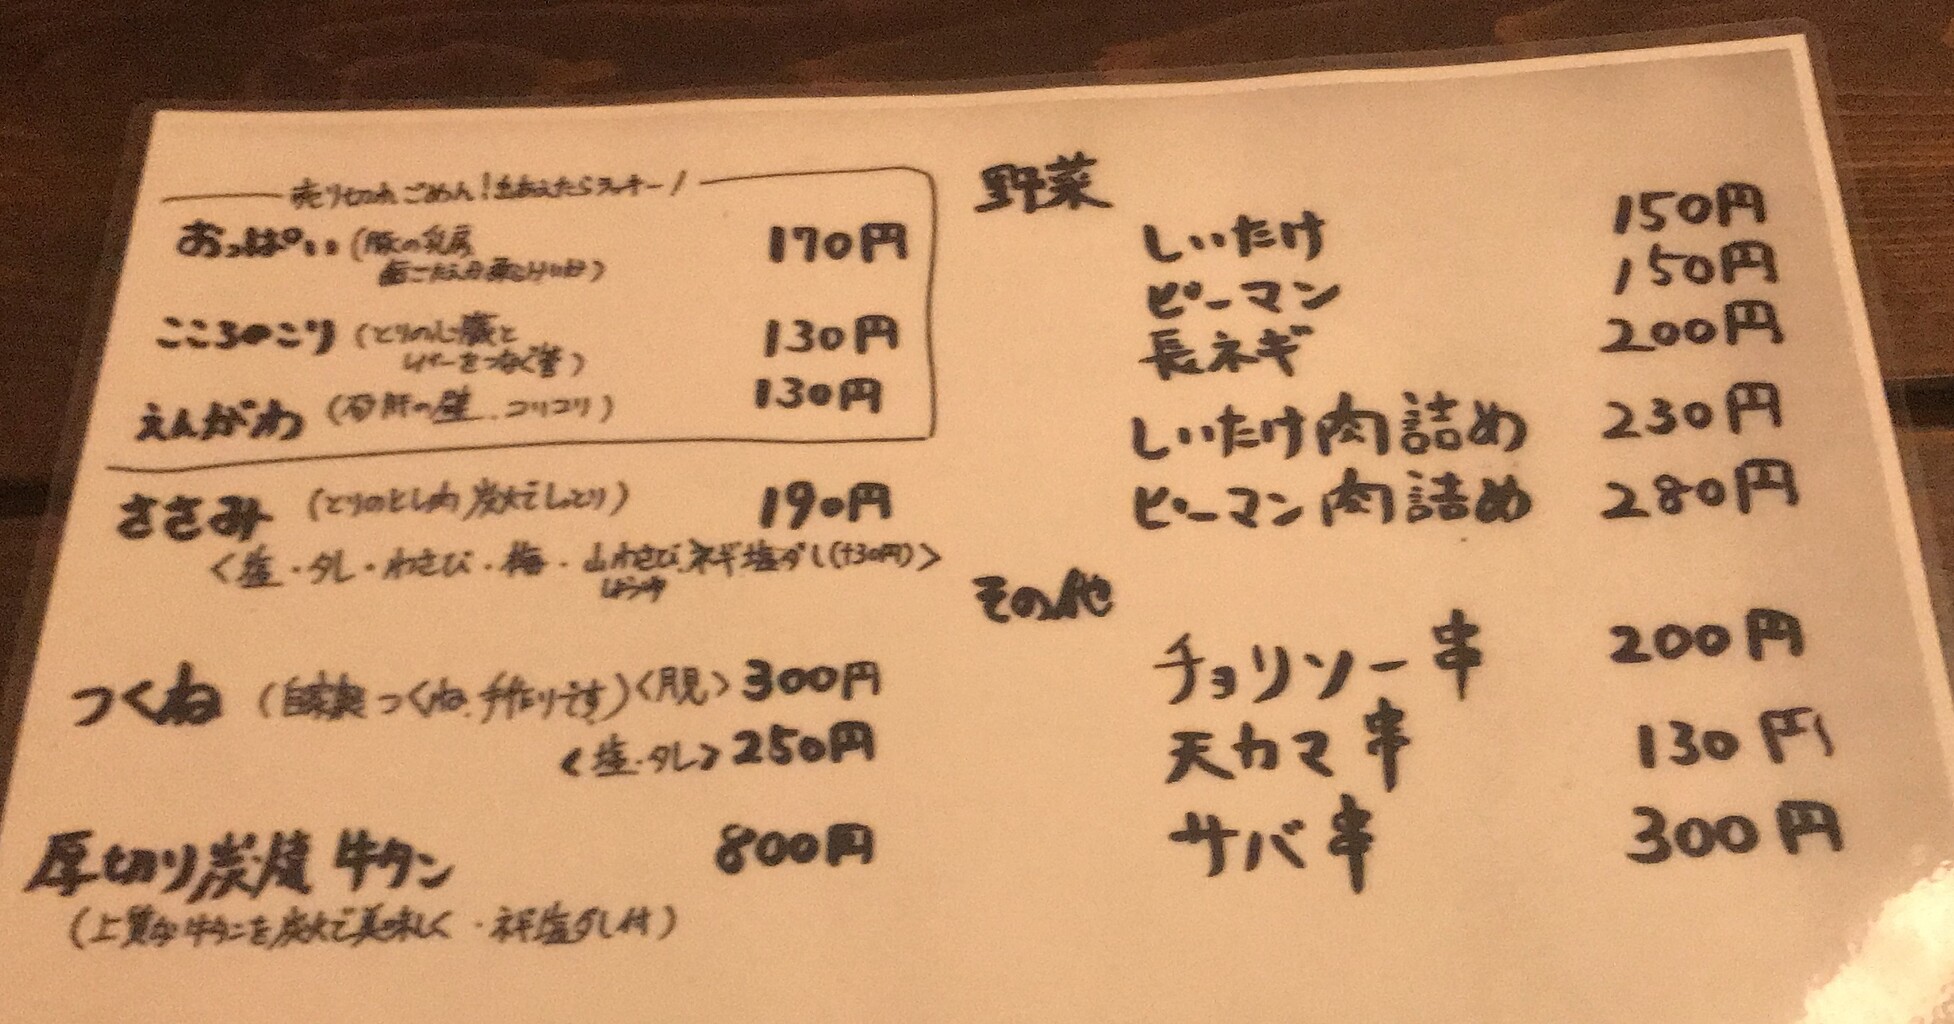 売り切れごめん!出あえたらラッキー!
おっぱい (豚の乳房 170円
歯ごたえ
こころのこり (とりの心臓と 130円
レバーをつなぐ管)
えんがわ (砂肝の壁、コリコリ) 130円
ささみ (とりのとしわ 炭火でしっとり) 190円
<塩・タレ・わさび・梅・山わさび、ネギ塩ダレ(+30円)>
しょうゆ
つくね (自家製つくね、手作りです) <月見> 300円
<塩・タレ> 250円
厚切り炭焼牛タン 800円
(上質な牛タンを炭火で美味しく・ネギ塩ダレ付)
野菜
しいたけ 150円
ピーマン 150円
長ネギ 200円
しいたけ肉詰め 230円
ピーマン肉詰め 280円
その他
チョリソー串 200円
天カマ串 130円
サバ串 300円